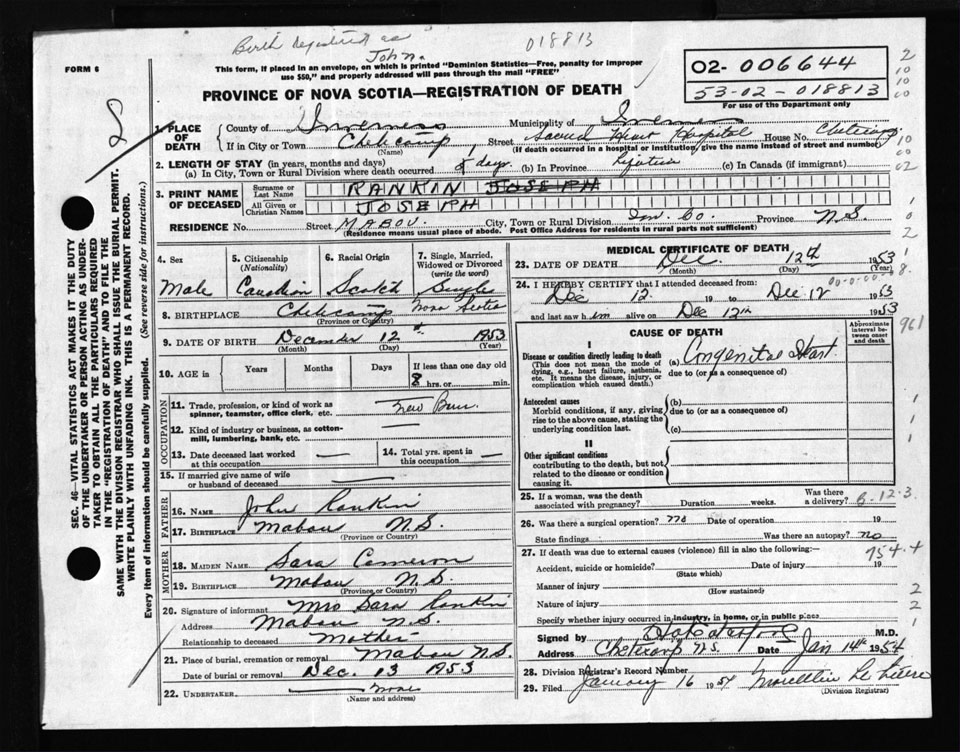 Birth registered as
John.
018813
FORM 6
This form, if placed in an envelope, on which is printed "Dominion Statistics—Free, penalty for improper
use $50," and properly addressed will pass through the mail "FREE"
02- 006644
53-02-018813
For use of the Department only
PROVINCE OF NOVA SCOTIA—REGISTRATION OF DEATH
1. PLACE OF DEATH
County of Inverness Municipality of Inverness
If in City or Town Cheticamp (Name) Street Sacred Heart Hospital House No. Cheticamp
(If death occurred in a hospital or institution, give the name instead of street and number)
2. LENGTH OF STAY (in years, months and days)
(a) In City, Town or Rural Division where death occurred days (b) In Province (c) In Canada (if immigrant)
3. PRINT NAME OF DECEASED
Surname or Last Name RANKIN JOSEPH
All Given or Christian Names JOSEPH
RESIDENCE No. Street MABOU. City, Town or Rural Division Inv. Co. Province N.S.
(Residence means usual place of abode. Post Office Address for residents in rural parts not sufficient)
4. Sex Male
5. Citizenship (Nationality) Canadian
6. Racial Origin Scotch
7. Single, Married, Widowed or Divorced (write the word) Single
8. BIRTHPLACE Cheticamp Nova Scotia
(Province or Country)
9. DATE OF BIRTH December 12 1953
(Month) (Day) (Year)
10. AGE in Years Months Days If less than one day old
hrs. or min.
OCCUPATION
11. Trade, profession, or kind of work as spinner, teamster, office clerk, etc. New Born
12. Kind of industry or business, as cotton-mill, lumbering, bank, etc. —
13. Date deceased last worked at this occupation —
14. Total yrs. spent in this occupation —
15. If married give name of wife or husband of deceased —
FATHER
16. NAME John Rankin
17. BIRTHPLACE Mabou N.S.
(Province or Country)
MOTHER
18. MAIDEN NAME Sara Cameron
19. BIRTHPLACE Mabou N.S.
(Province or Country)
20. Signature of informant Mrs Sara Rankin
Address Mabou N.S.
Relationship to deceased Mother
21. Place of burial, cremation or removal Mabou N.S.
Date of burial or removal Dec. 13 1953
22. UNDERTAKER none
(Name and address)
MEDICAL CERTIFICATE OF DEATH
23. DATE OF DEATH Dec. 12th 1953
(Month) (Day) (Year)
24. I HEREBY CERTIFY that I attended deceased from:
Dec 12 19 to Dec 12 1953
and last saw him alive on Dec 12th 1953
CAUSE OF DEATH
Approximate interval between onset and death
I
Disease or condition directly leading to death
(This does not mean the mode of dying, e.g., heart failure, asthenia, etc. It means the disease, injury, or complication which caused death.)
(a) Congenital Heart
due to (or as a consequence of)
Antecedent causes
Morbid conditions, if any, giving rise to the above cause, stating the underlying condition last.
(b)
due to (or as a consequence of)
(c)
II
Other significant conditions
contributing to the death, but not related to the disease or condition causing it.
25. If a woman, was the death associated with pregnancy? Duration weeks. Was there a delivery?
B-12-3.
26. Was there a surgical operation? no Date of operation 19
State findings Was there an autopsy? no
27. If death was due to external causes (violence) fill in also the following:—
754.4
Accident, suicide or homicide? Date of injury 19
(State which)
Manner of injury
(How sustained)
Nature of injury
Specify whether injury occurred in industry, in home, or in public place
Signed by M.D.
Address Cheticamp N.S. Date Jan 14th 1954
28. Division Registrar's Record Number
29. Filed January 16 1954
(Division Registrar)
SEC. 46—VITAL STATISTICS ACT MAKES IT THE DUTY
OF THE UNDERTAKER OR PERSON ACTING AS UNDER-
TAKER TO OBTAIN ALL THE PARTICULARS REQUIRED
IN THE "REGISTRATION OF DEATH" AND TO FILE THE
SAME WITH THE DIVISION REGISTRAR WHO SHALL ISSUE THE BURIAL PERMIT.
WRITE PLAINLY WITH UNFADING INK. THIS IS A PERMANENT RECORD.
Every item of information should be carefully supplied. (See reverse side for instructions.)